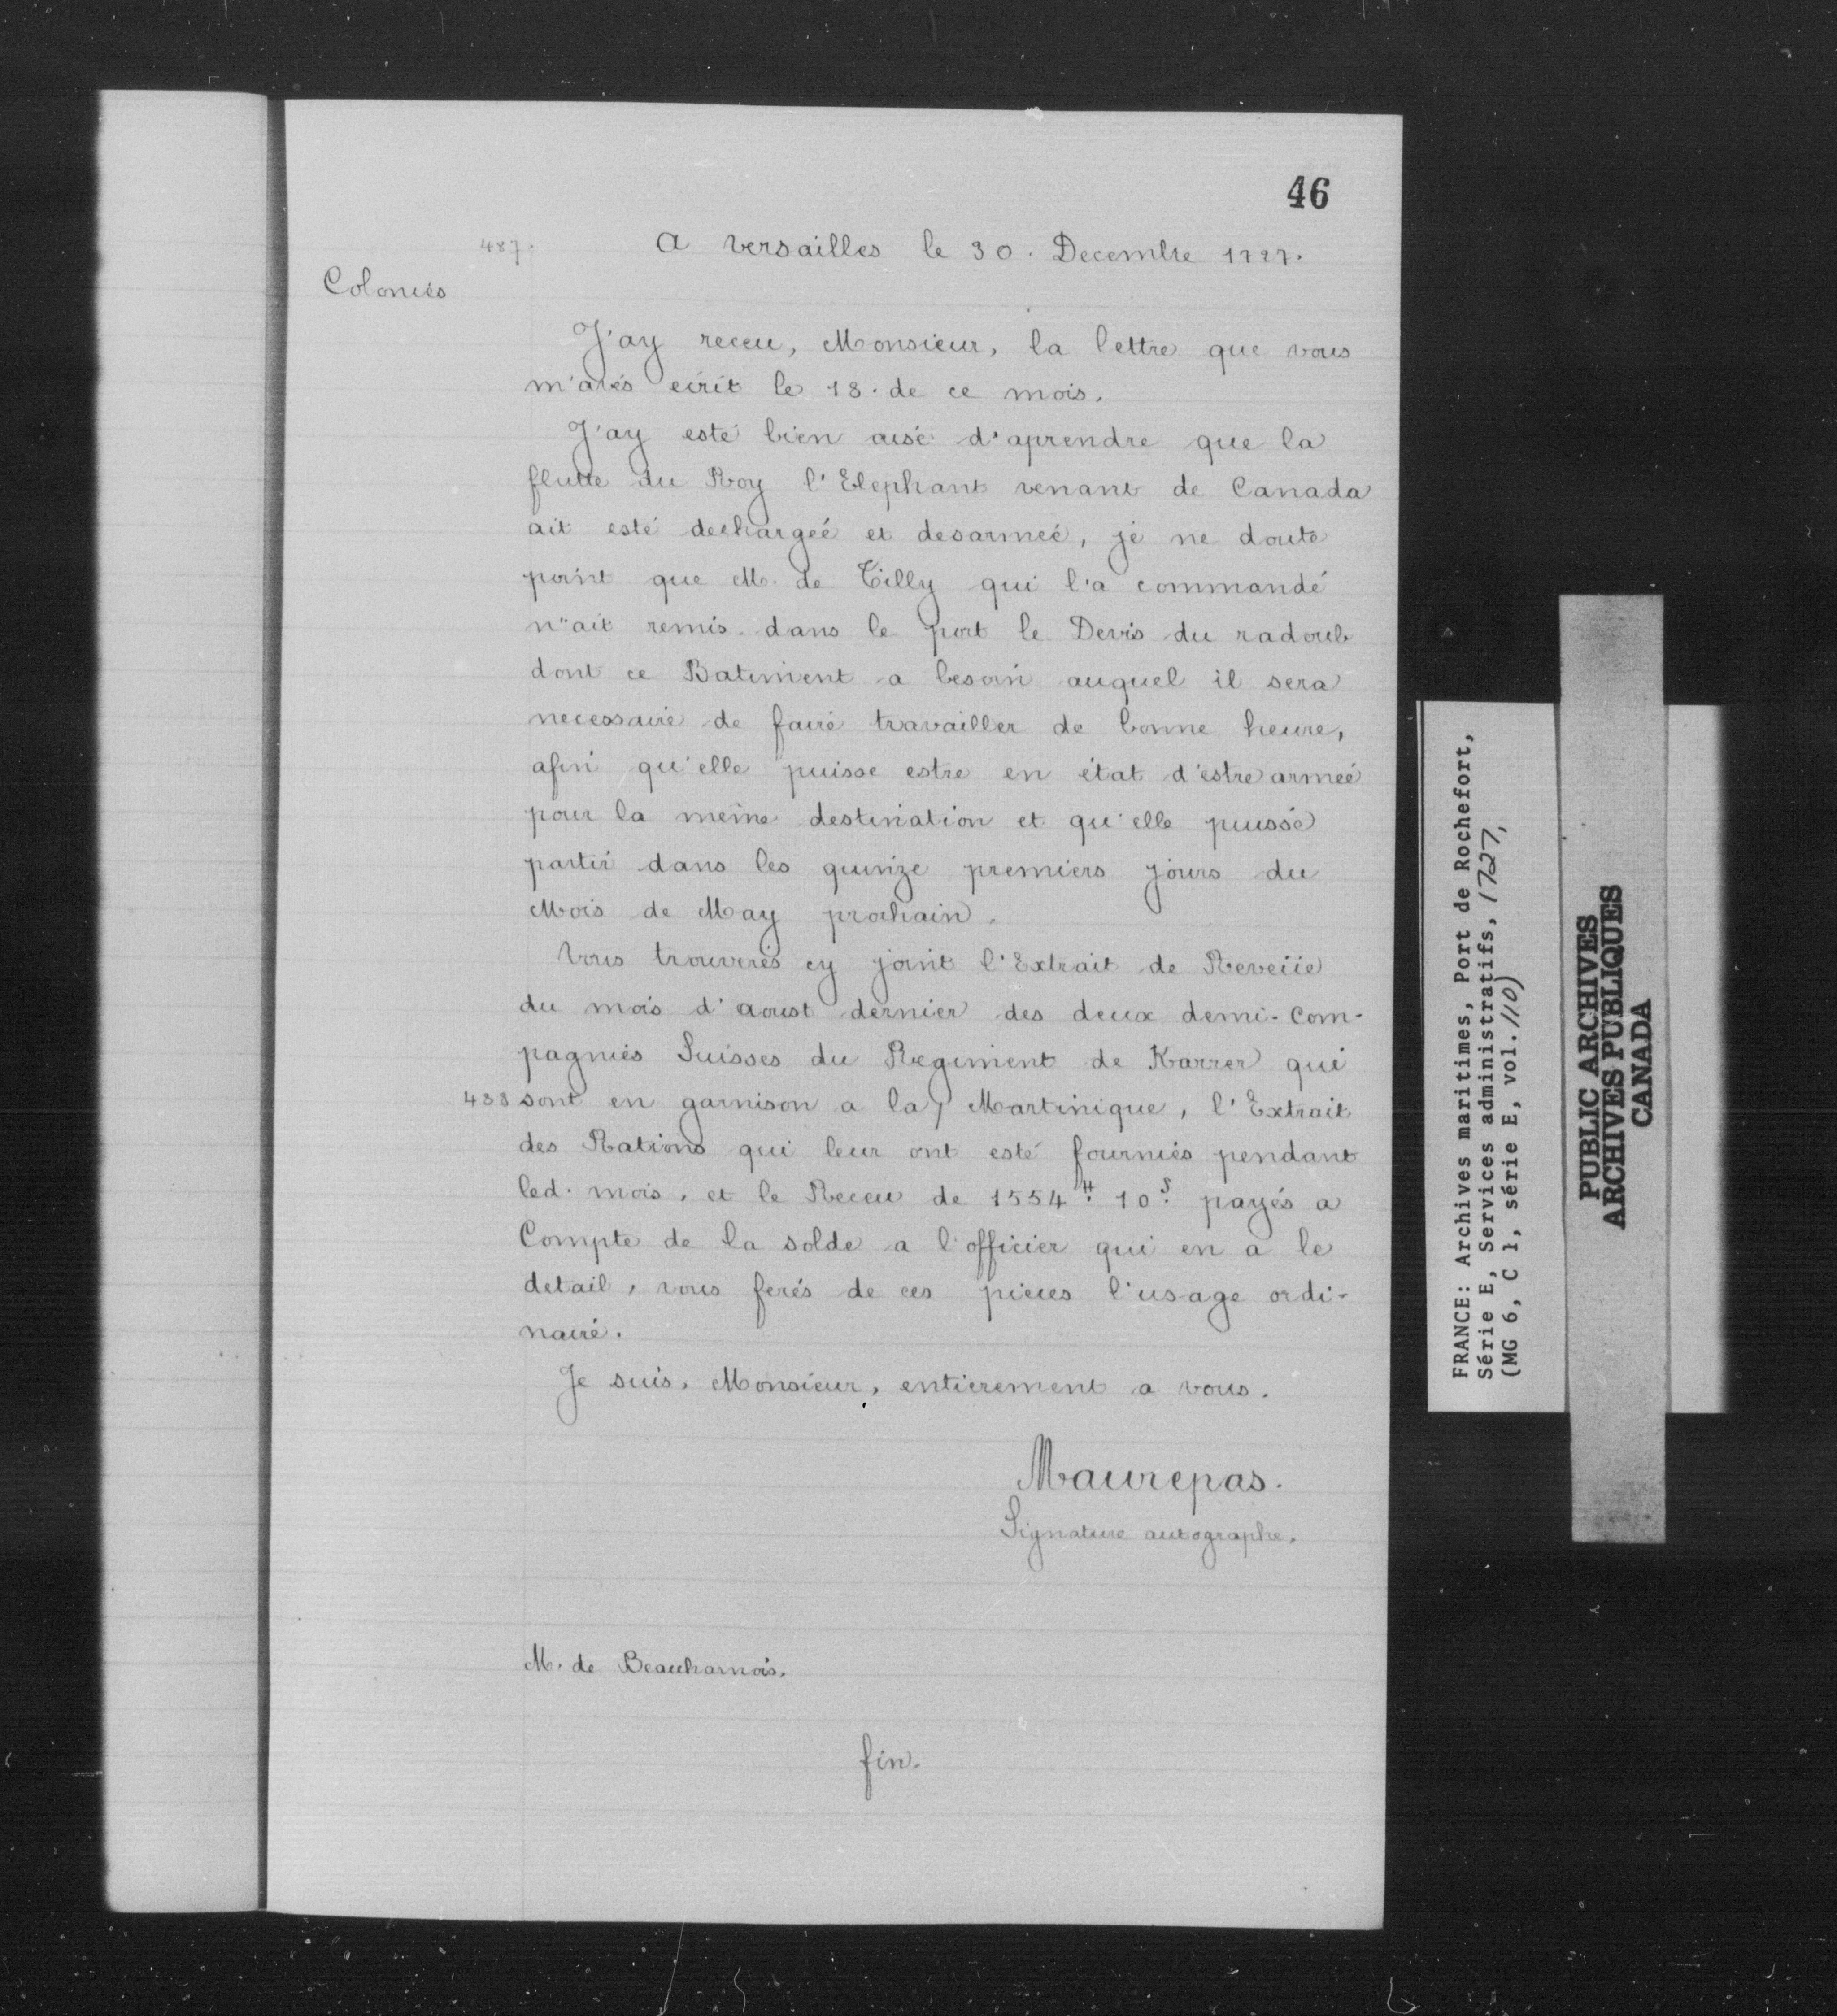 46
487.
A versailles le 30. Decembre 1727.
Colonies
J'ay receu, Monsieur, la lettre que vous
m'avés ecrit le 18. de ce mois.
J'ay esté bien aisé d'aprendre que la
flutte du Roy l'Elephant venant de Canada
ait esté dechargeé et desarmeé, je ne doute
point que M. de Tilly qui l'a commandé
n'ait remis dans le port le Devis du radoub
dont ce Batiment a besoin auquel il sera
necessaire de faire travailler de bonne heure,
afin qu'elle puisse estre en état d'estre armeé
pour la meme destination et qu'elle puisse
partir dans les quinze premiers jours du
Mois de May prochain.
Vous trouverés cy joint l'Extrait de Reveüe
du mois d'aoust dernier des deux demi-Com-
pagnies Suisses du Regiment de Karrer qui
488 sont en garnison a la / Martinique, l'Extrait
des Rations qui leur ont esté fournies pendant
led. mois, et le Receu de 1554# 10s payés a
Compte de la solde a l'officier qui en a le
detail, vous ferés de ces pieces l'usage ordi-
naire.
Je suis, Monsieur, entierement a vous.
Maurepas.
Signature autographe.
M. de Beauharnois.
fin.
FRANCE: Archives maritimes, Port de Rochefort,
Série E, Services administratifs, 1727,
(MG 6, C 1, série E, vol. 110)
PUBLIC ARCHIVES
ARCHIVES PUBLIQUES
CANADA